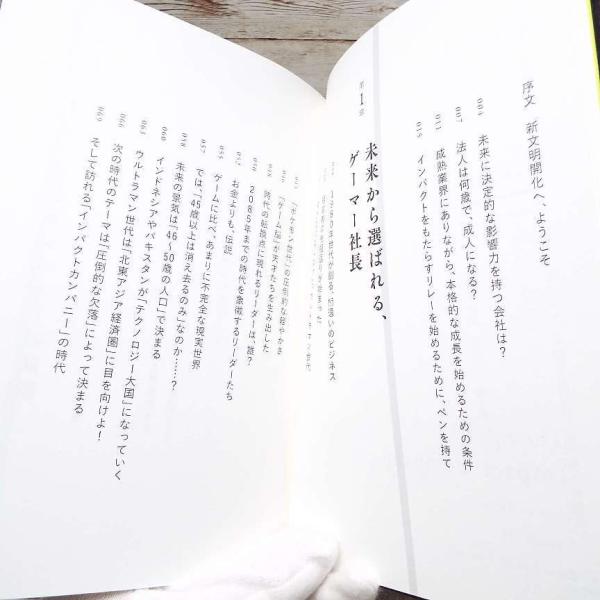 序文 新文明開化へ、ようこそ
004 未来に決定的な影響力を持つ会社は?
007 法人は何歳で、成人になる?
011 成熟業界にありながら、本格的な成長を始めるための条件
015 インパクトをもたらすリレーを始めるために、ペンを持て
第1章
未来から選ばれる、
ゲーマー社長
1980年世代が創る、桁違いのビジネス
「ポケモン世代」の圧倒的な軽やかさ
「ゲーム脳」が天才たちを生み出した
050 時代の転換点に現れるリーダーは、誰?
2085年までの時代を象徴するリーダーたち
052 お金よりも、伝説
055 ゲームに比べ、あまりに不完全な現実世界
057 では、「45歳以上は消え去るのみ」なのか……?
058 未来の景気は「46〜50歳の人口」で決まる
060 インドネシアやパキスタンが「テクノロジー大国」になっていく
063 ウルトラマン世代は「北東アジア経済圏」に目を向けよ!
066 次の時代のテーマは「圧倒的な欠落」によって決まる
069 そして訪れる「インパクトカンパニー」の時代